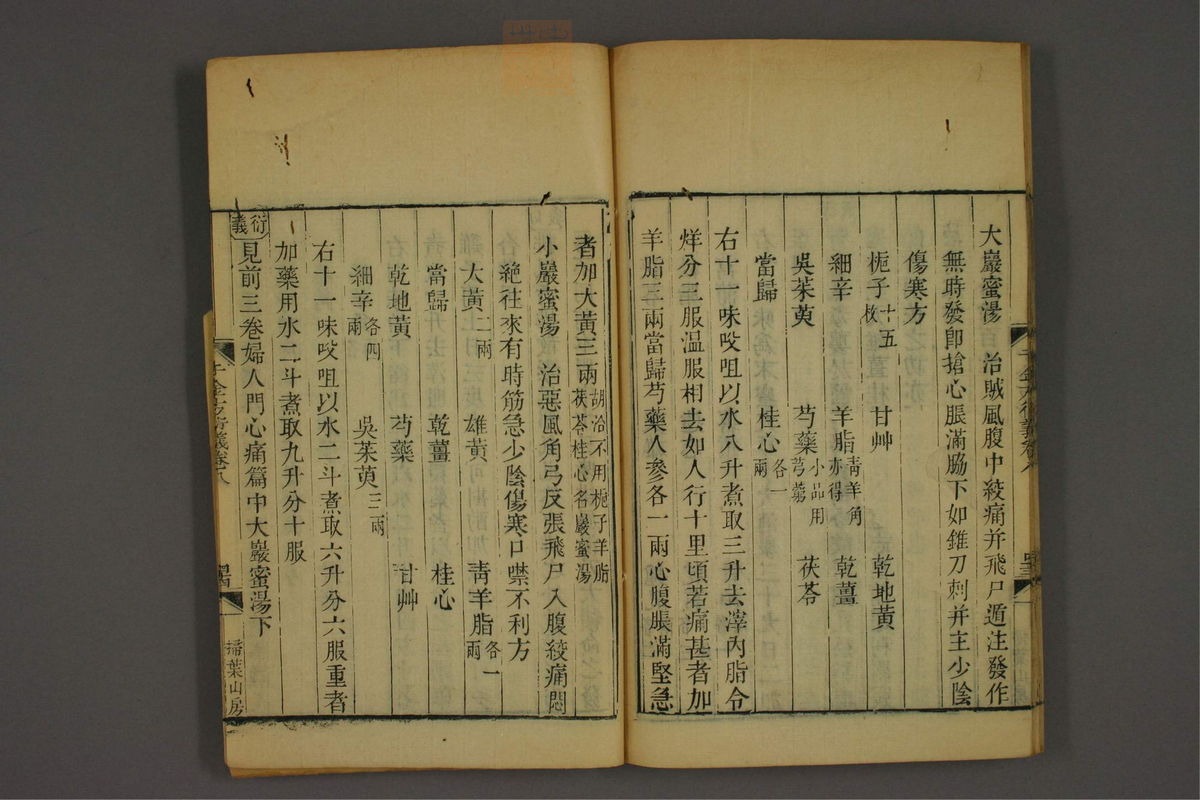 大巖蜜湯　治賊風腹中絞痛并飛尸遁注發作
無時發卽搶心脹滿脇下如錐刀刺并主少陰
傷寒方
梔子十五枚　甘艸　乾地黃
細辛　羊脂青羊角亦得　乾薑
吳茱萸　芍藥小品用芎藭　茯苓
當歸　桂心各一兩
右十一味㕮咀以水八升煮取三升去滓內脂令
烊分三服溫服相去如人行十里頃若痛甚者加
羊脂三兩當歸芍藥人參各一兩心腹脹滿堅急
者加大黃三兩胡洽不用梔子羊脂茯苓桂心名巖蜜湯
小巖蜜湯　治惡風角弓反張飛尸入腹絞痛悶
絶往來有時筋急少陰傷寒口噤不利方
大黃二兩　雄黃　青羊脂各一兩
當歸　乾薑　桂心
乾地黃　芍藥　甘艸
細辛各四兩　吳茱萸三兩
右十一味㕮咀以水二斗煮取六升分六服重者
加藥用水二斗煮取九升分十服
衍義
見前三卷婦人門心痛篇中大巖蜜湯下
千金方衍義卷八
掃葉山房